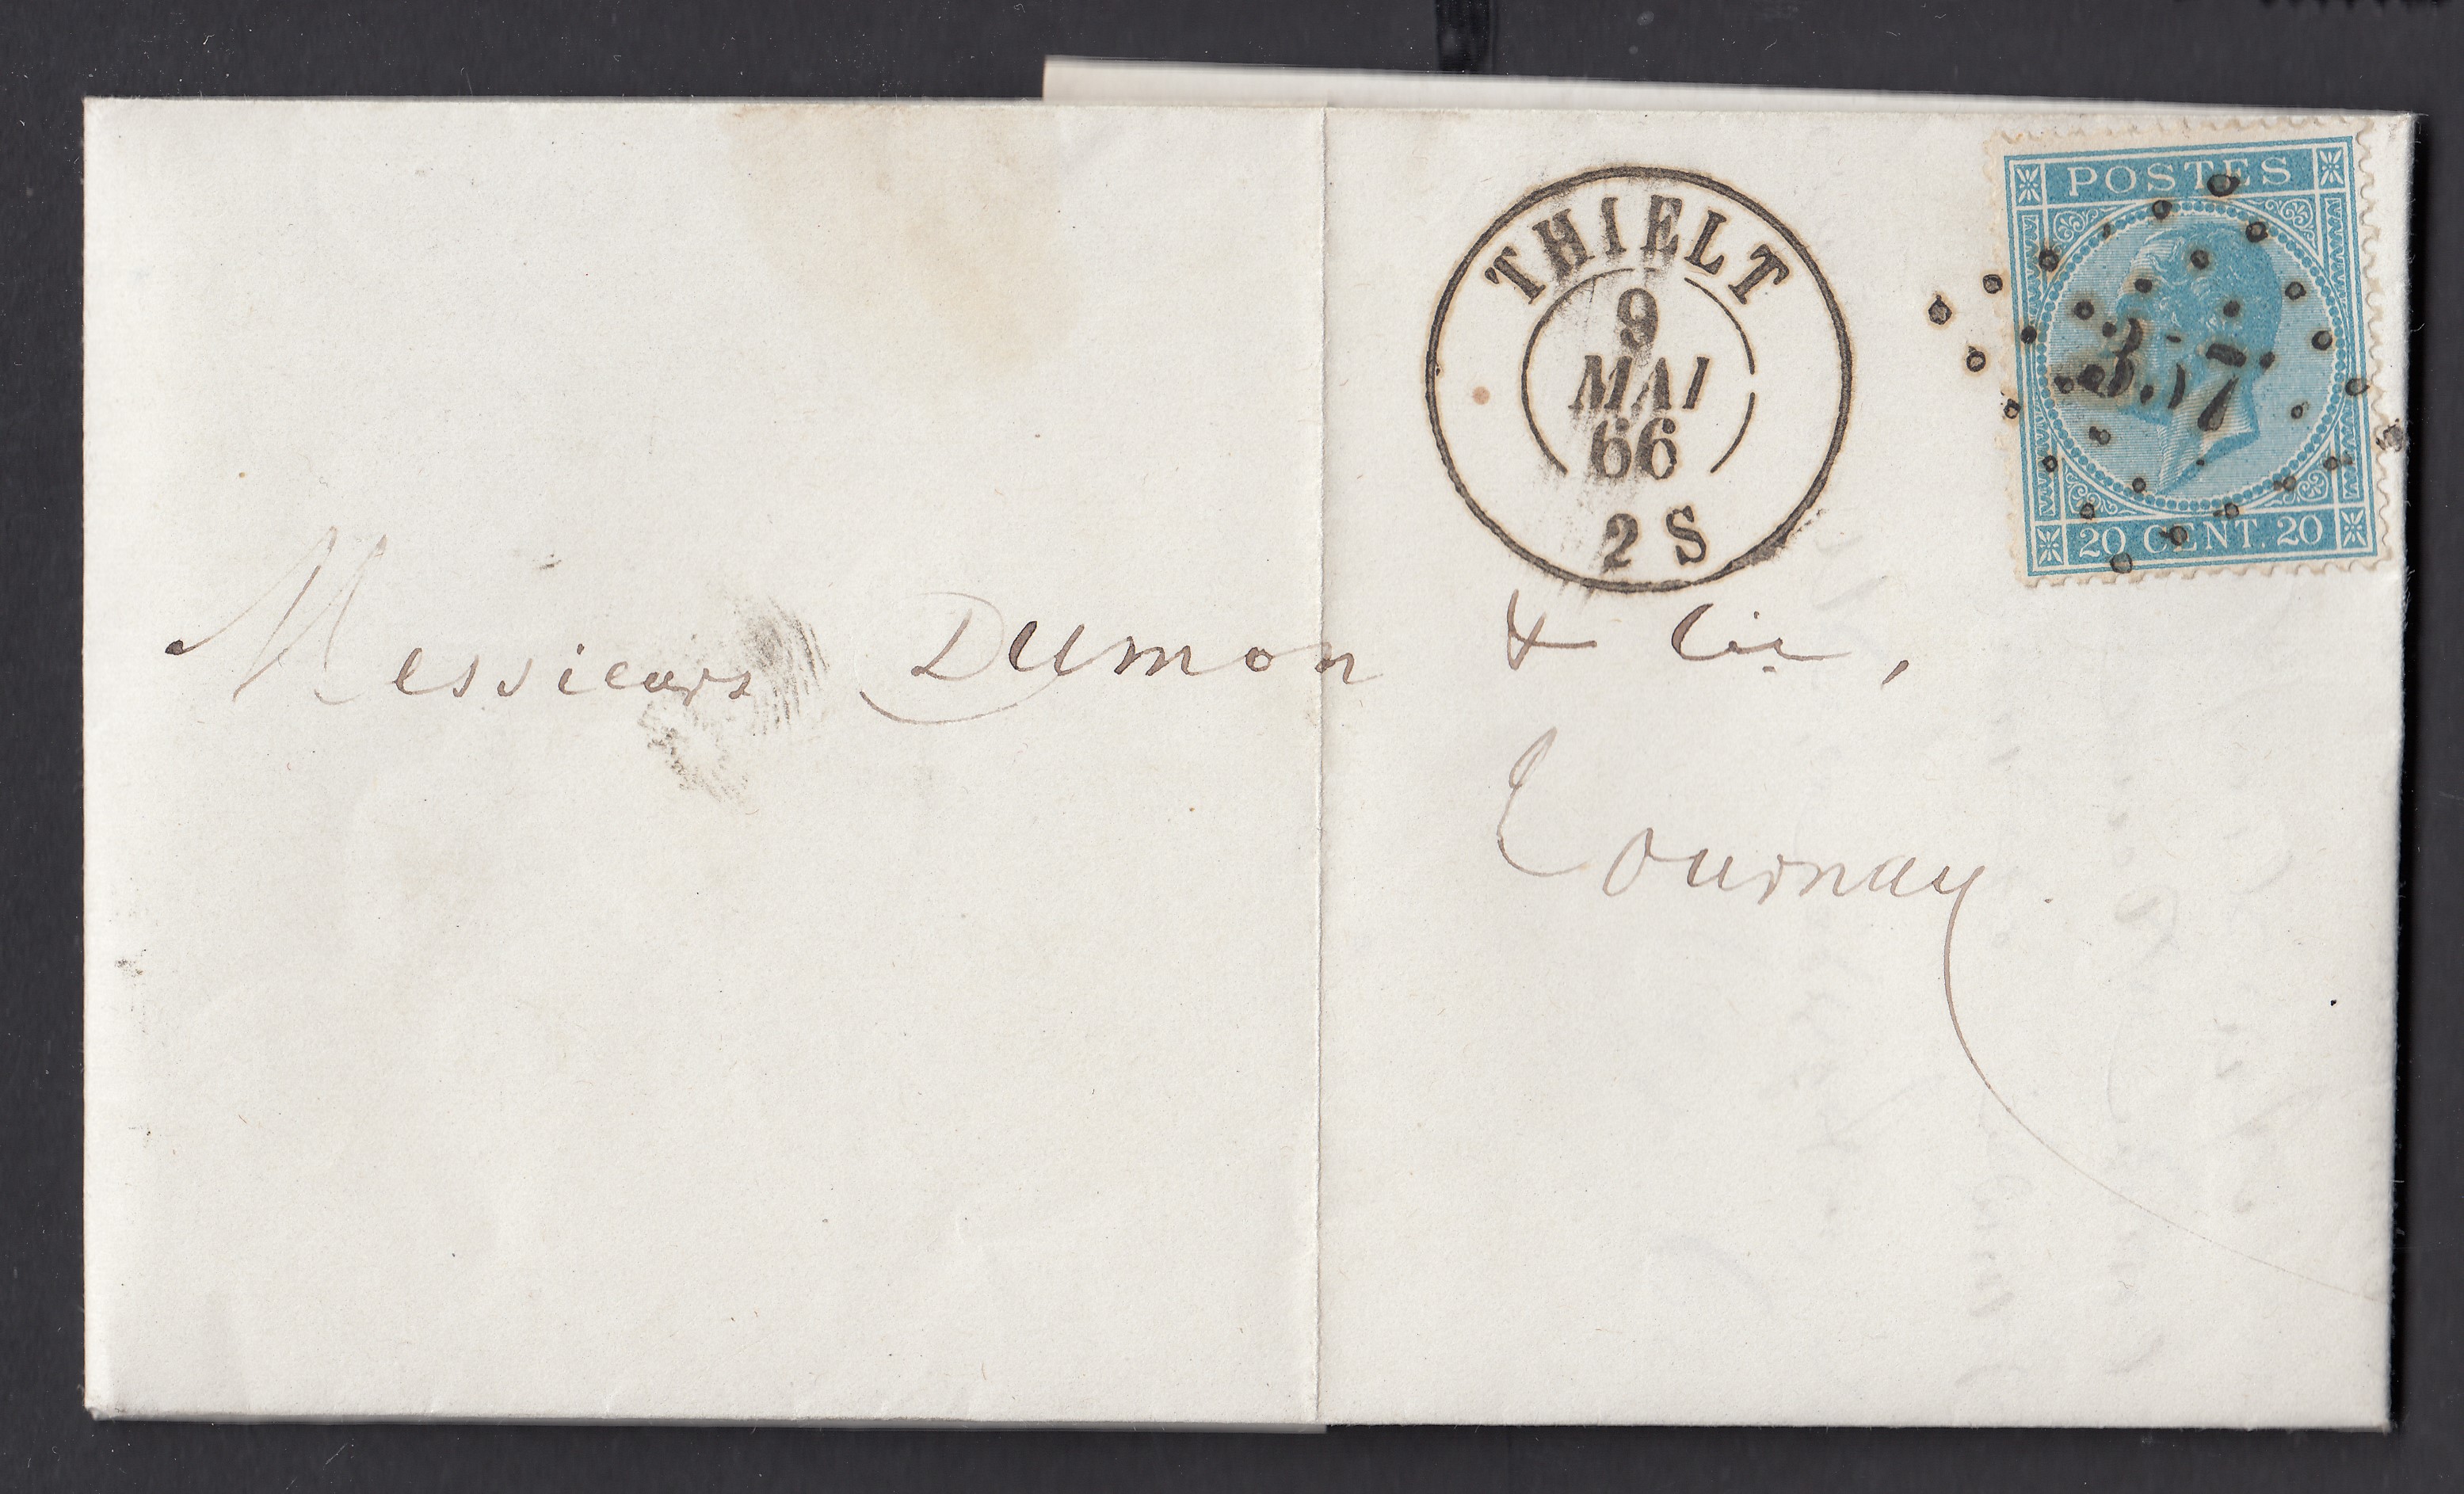 POSTES
THIELT
9
MAI
66
2 S
357
20 CENT. 20
Messieurs Dumon & Cie,
Tournay